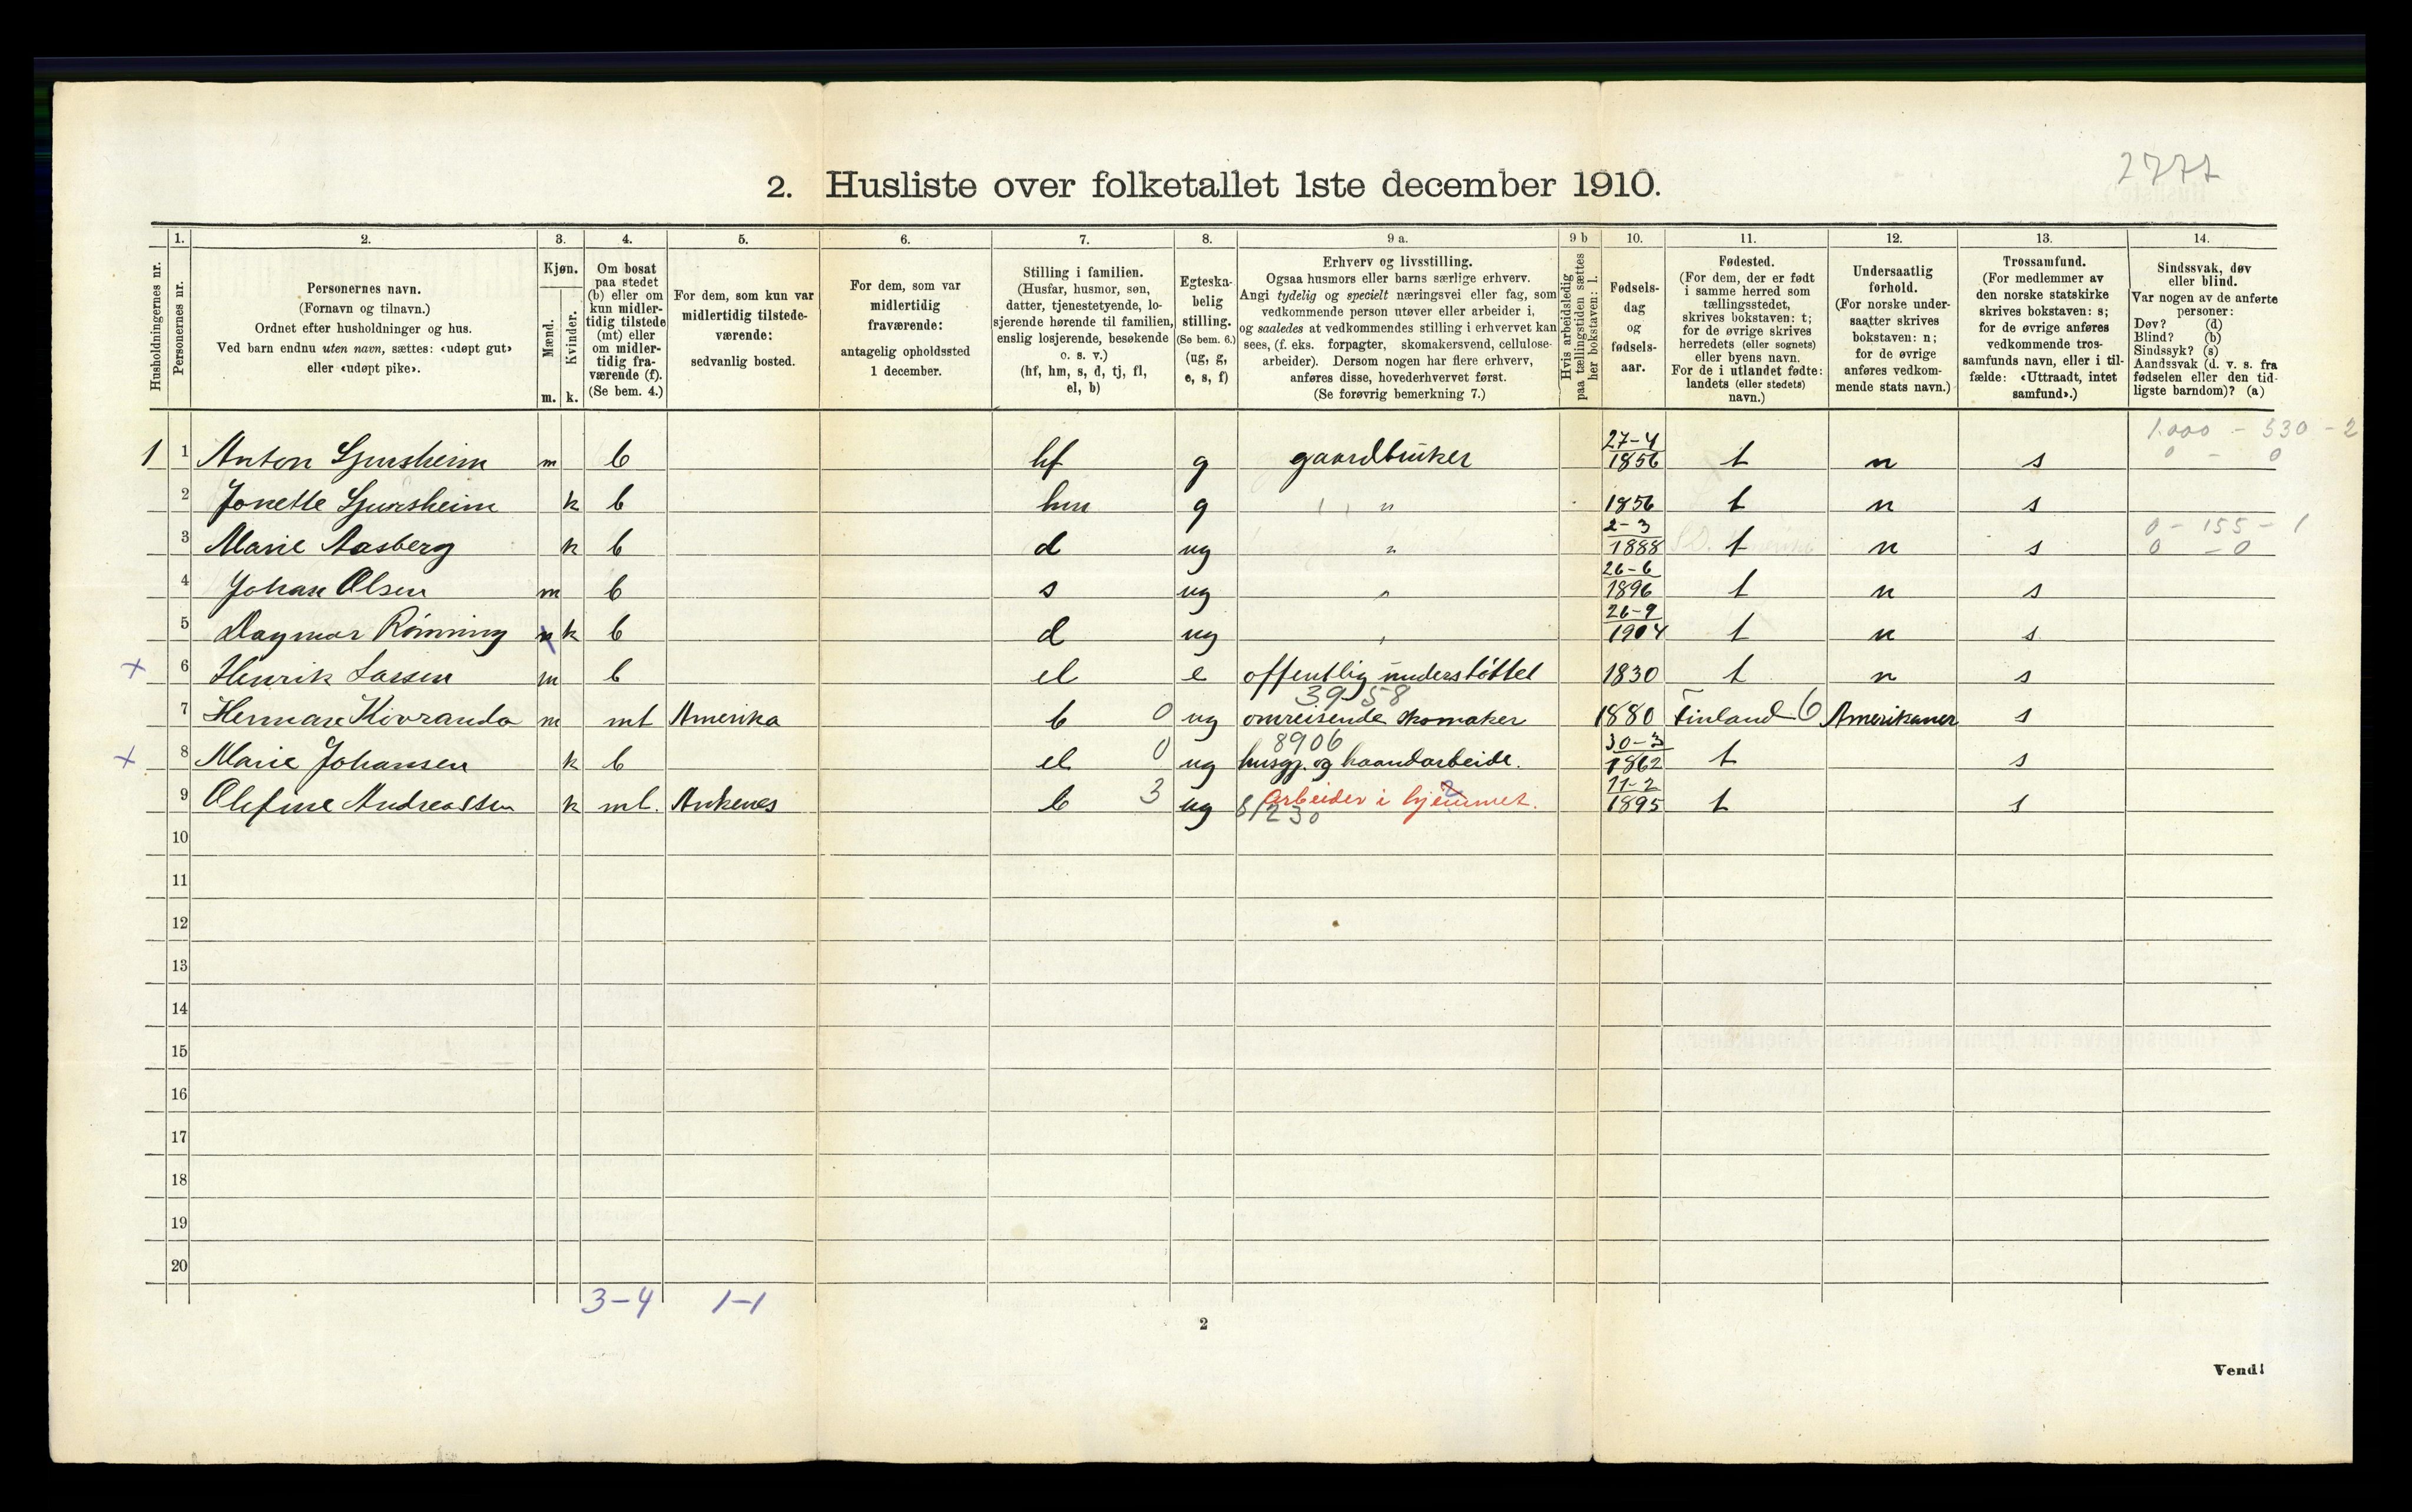 2777
2. Husliste over folketallet 1ste december 1910.
Husholdningernes nr.
1. Personernes nr.
2. Personernes navn. (Fornavn og tilnavn.) Ordnet efter husholdninger og hus. Ved barn endnu uten navn, sættes: «udøpt gut» eller «udøpt pike».
3. Kjøn. Mænd. m. Kvinder. k.
4. Om bosat paa stedet (b) eller om kun midlertidig tilstede (mt) eller om midlertidig fraværende (f). (Se bem. 4.)
5. For dem, som kun var midlertidig tilstedeværende: sedvanlig bosted.
6. For dem, som var midlertidig fraværende: antagelig opholdssted 1 december.
7. Stilling i familien. (Husfar, husmor, søn, datter, tjenestetyende, losjerende hørende til familien, enslig losjerende, besøkende o. s. v.) (hf, hm, s, d, tj, fl, el, b)
8. Egteskabelig stilling. (Se bem. 6.) (ug, g, e, s, f)
9 a. Erhverv og livsstilling. Ogsaa husmors eller barns særlige erhverv. Angi tydelig og specielt næringsvei eller fag, som vedkommende person utøver eller arbeider i, og saaledes at vedkommendes stilling i erhvervet kan sees, (f. eks. forpagter, skomakersvend, cellulose-arbeider). Dersom nogen har flere erhverv, anføres disse, hovederhvervet først. (Se forøvrig bemerkning 7.)
9 b Hvis arbeidsledig paa tællingstiden sættes her bokstaven: l.
10. Fødsels-dag og fødsels-aar.
11. Fødested. (For dem, der er født i samme herred som tællingsstedet, skrives bokstaven: t; for de øvrige skrives herredets (eller sognets) eller byens navn. For de i utlandet fødte: landets (eller stedets) navn.)
12. Undersaatlig forhold. (For norske undersaatter skrives bokstaven: n; for de øvrige anføres vedkommende stats navn.)
13. Trossamfund. (For medlemmer av den norske statskirke skrives bokstaven: s; for de øvrige anføres vedkommende trossamfunds navn, eller i tilfælde: «Uttraadt, intet samfund».)
14. Sindssvak, døv eller blind. Var nogen av de anførte personer: Døv? (d) Blind? (b) Sindssyk? (s) Aandssvak (d. v. s. fra fødselen eller den tidligste barndom)? (a)
1 1 Anton Sjursheim m b hf g gaardbruker 27-4 1856 t n s 1.000 - 530 - 2 0 - 0
2 Jonette Sjursheim k b hm g " 1856 t n s
3 Marie Aasberg k b d ug " 2-3 1888 t n s 0 - 155 - 1 0 - 0
4 Johan Olsen m b s ug " 26-6 1896 t n s
5 Dagmar Rønning k b d ug " 26-9 1904 t n s
x 6 Henrik Larsen m b el e offentlig understøttet 1830 t n s
7 Herman Kivranda m mt Amerika b 0 ug 3958 omreisende skomaker 1880 Finland 6 Amerikaner s
x 8 Marie Johansen k b el 0 ug 8906 husgj. og haandarbeide. 30-3 1862 t s
9 Olefine Andreassen k mt. Ankenes b 3 ug arbeider i hjemmet. 2 11-2 1895 t s
10
11
12
13
14
15
16
17
18
19
20
3-4 1-1
2
Vend!